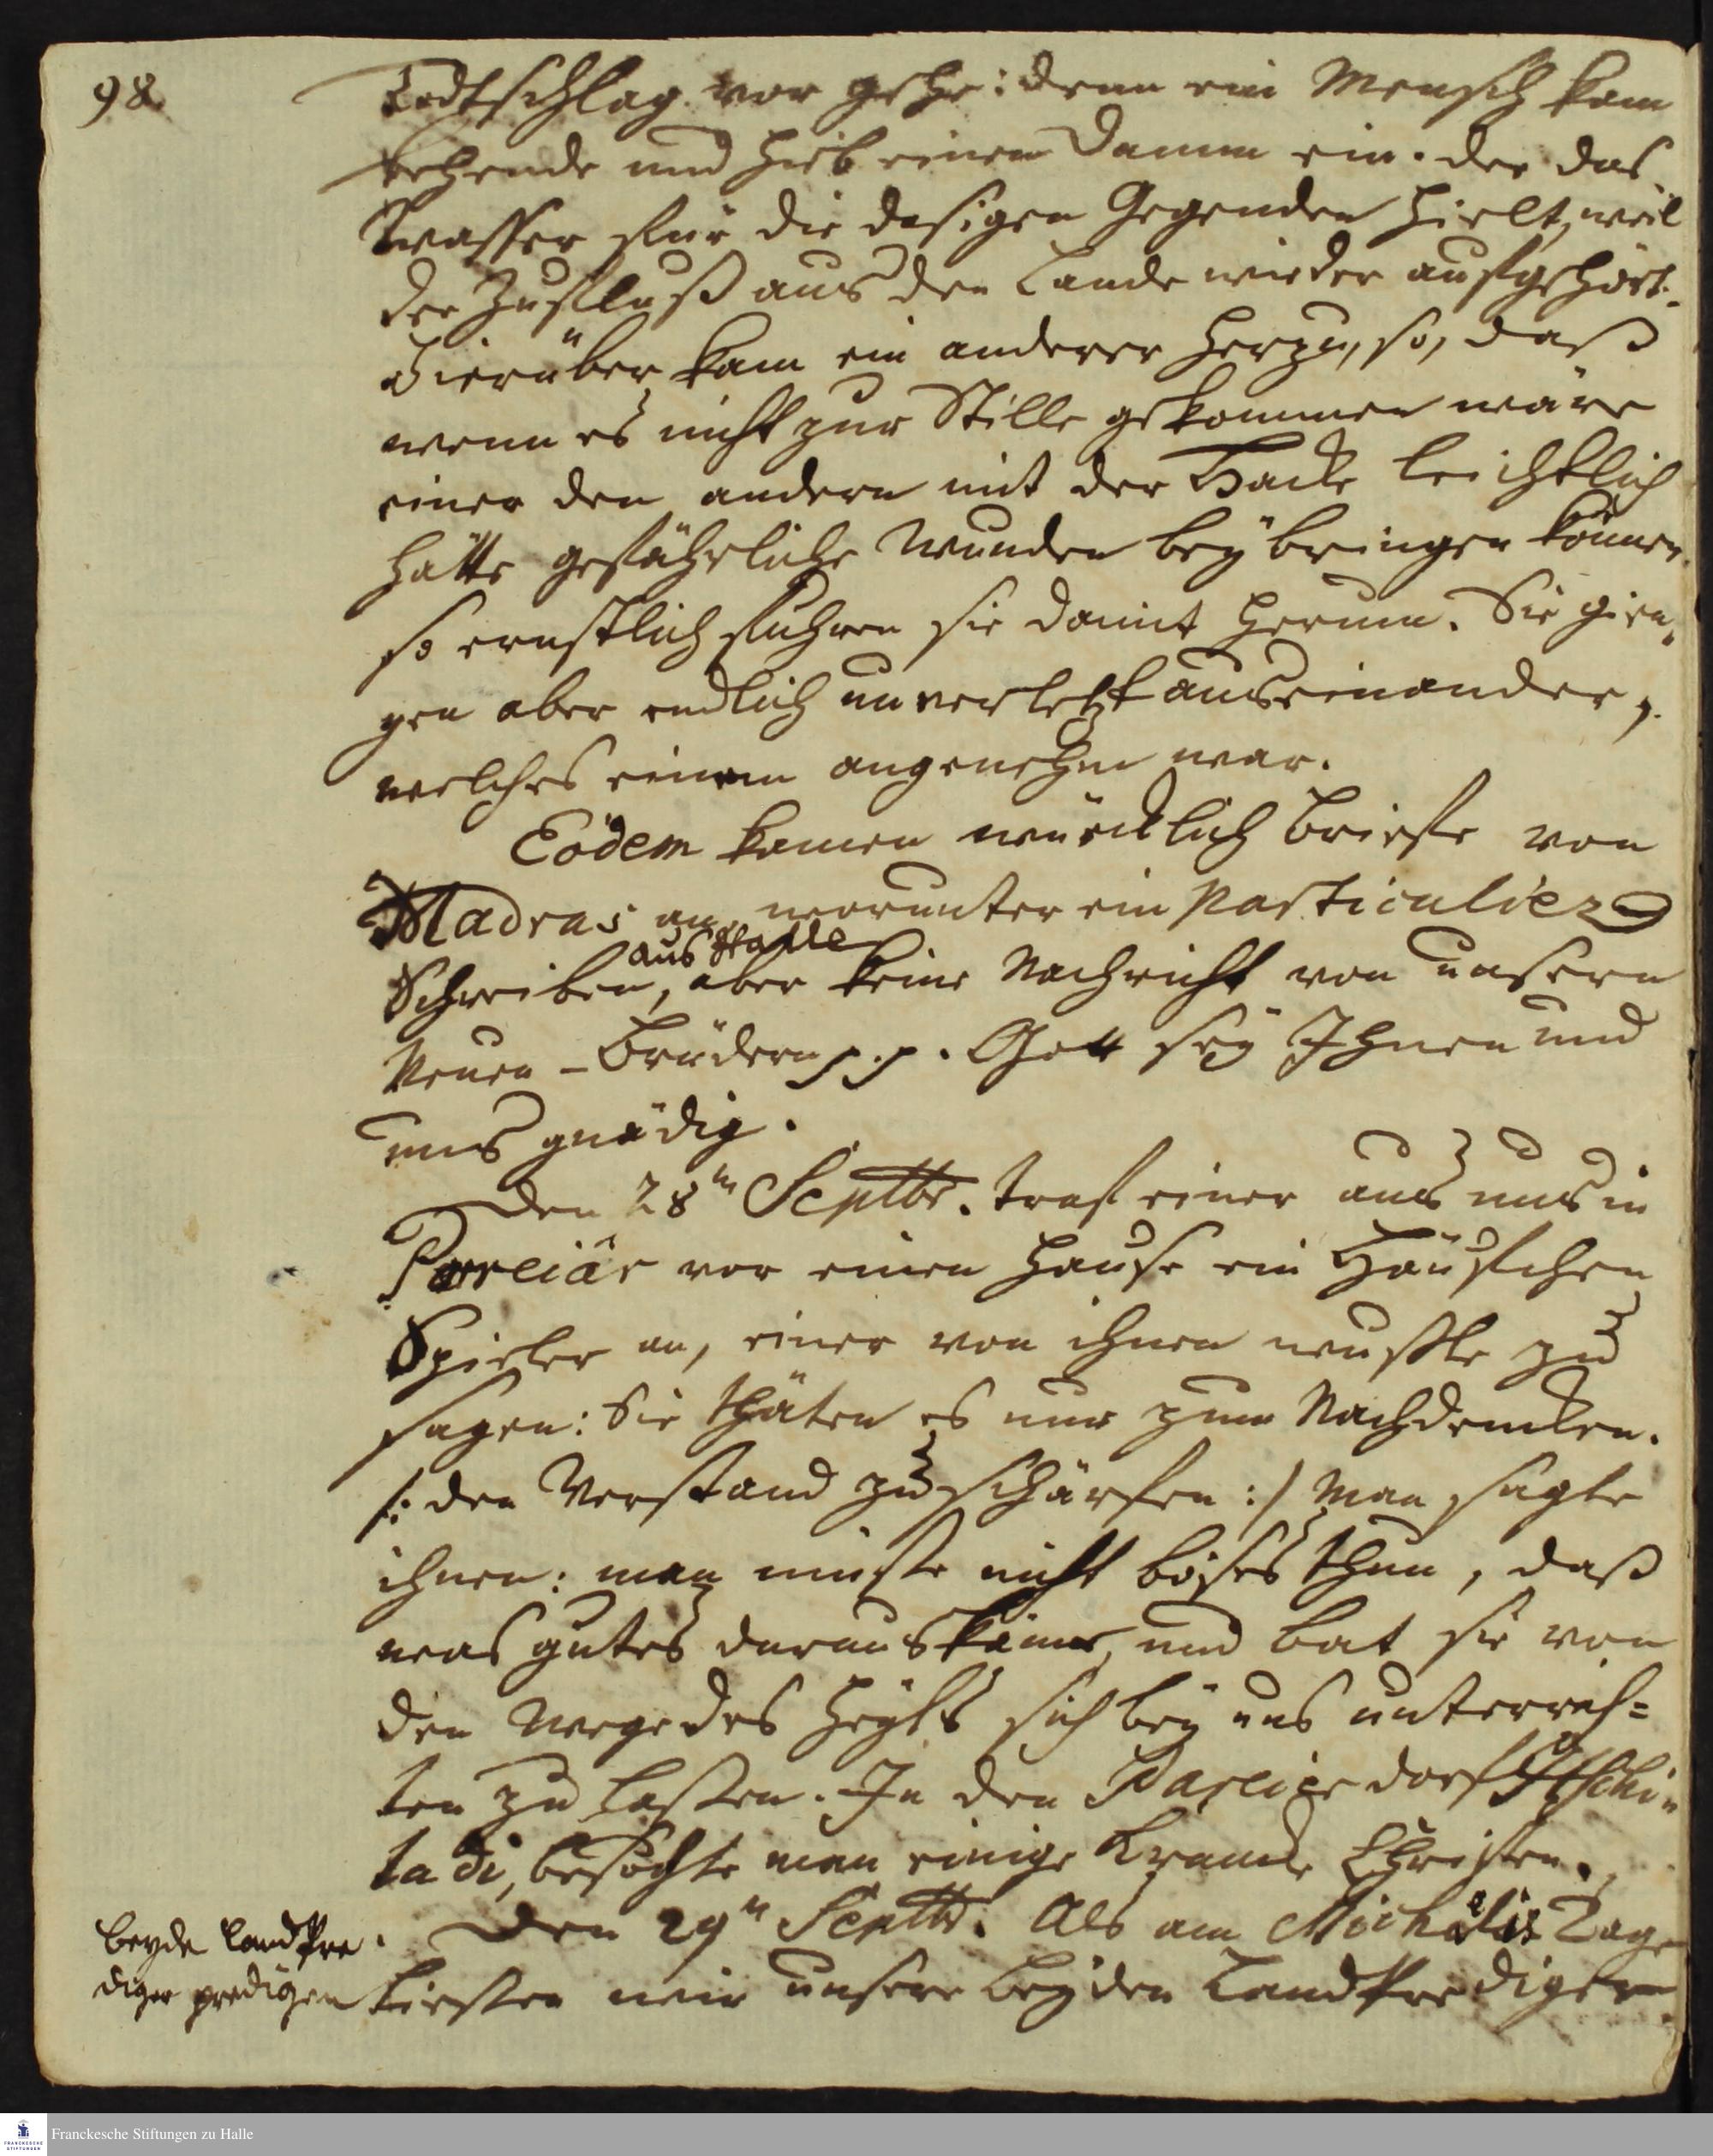 98
Todtschlag vor gehe: denn ein Mensch kam
behende und hieb einen Damm ein. der das
Wasser für die dasigen Gegenden hielt, weil
der Zufluß aus den Lande wieder aufgehört.
Hierüber kam ein anderer herzu, so, daß
wenn es nicht zur Stille gekommen wäre
einer den andern mit der Hacke leichtlich
hätte gefährliche Wunden beÿbringen können.
so ernstlich fuhren sie damit herum. Sie gien,,
gen aber endlich unverletzt auseinander,
welches einem angenehm war.
Eodem kamen würcklich Briefe von
Madras an, worunter ein Particulier
aus Halle
Schreiben, aber keine Nachricht von unsern
Neuen-Brüdern p.p. Gott seÿ Ihnen und
uns gnädig.
Den 28tn Septbr. traf einer aus uns in
Poreiár vor einen Hause ein Häufchen
Spieler an, einer von ihnen wuste zu
sagen: Sie thäten es nur zum Nachdencken.
/: den Verstand zu schärfen :/ Man sagte
ihnen: man müste nicht böses thun, daß
was gutes daraus käme, und bat sie von
den Wege des Heÿls sich beÿ uns unterrich=
ten zu laßen. In den Pareier dorf
tadi, besuchte man einige krancke Christen.
Den 29n Septbr. Als am Michaëlis Tage
beyde LandPre
diger predigen
ließen wir unsere beÿden LandPrediger
Franckesche Stiftungen zu Halle